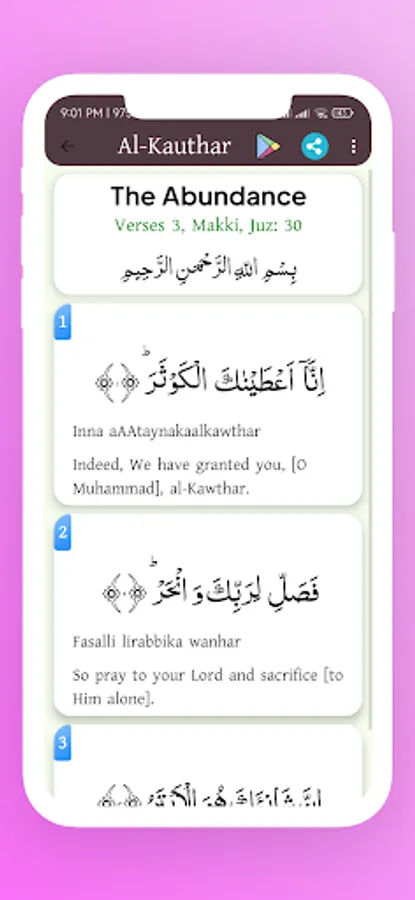 9:01 PM | 97
Al-Kauthar
The Abundance
Verses 3, Makki, Juz: 30
بِسْمِ اللّٰهِ الرَّحْمٰنِ الرَّحِيْمِ
1
اِنَّاۤ اَعْطَيْنٰكَ الْكَوْثَرَؕ
Inna aAAtaynakaalkawthar
Indeed, We have granted you, [O
Muhammad], al-Kawthar.
2
فَصَلِّ لِرَبِّكَ وَ انْحَرْؕ
Fasalli lirabbika wanhar
So pray to your Lord and sacrifice [to
Him alone].
3